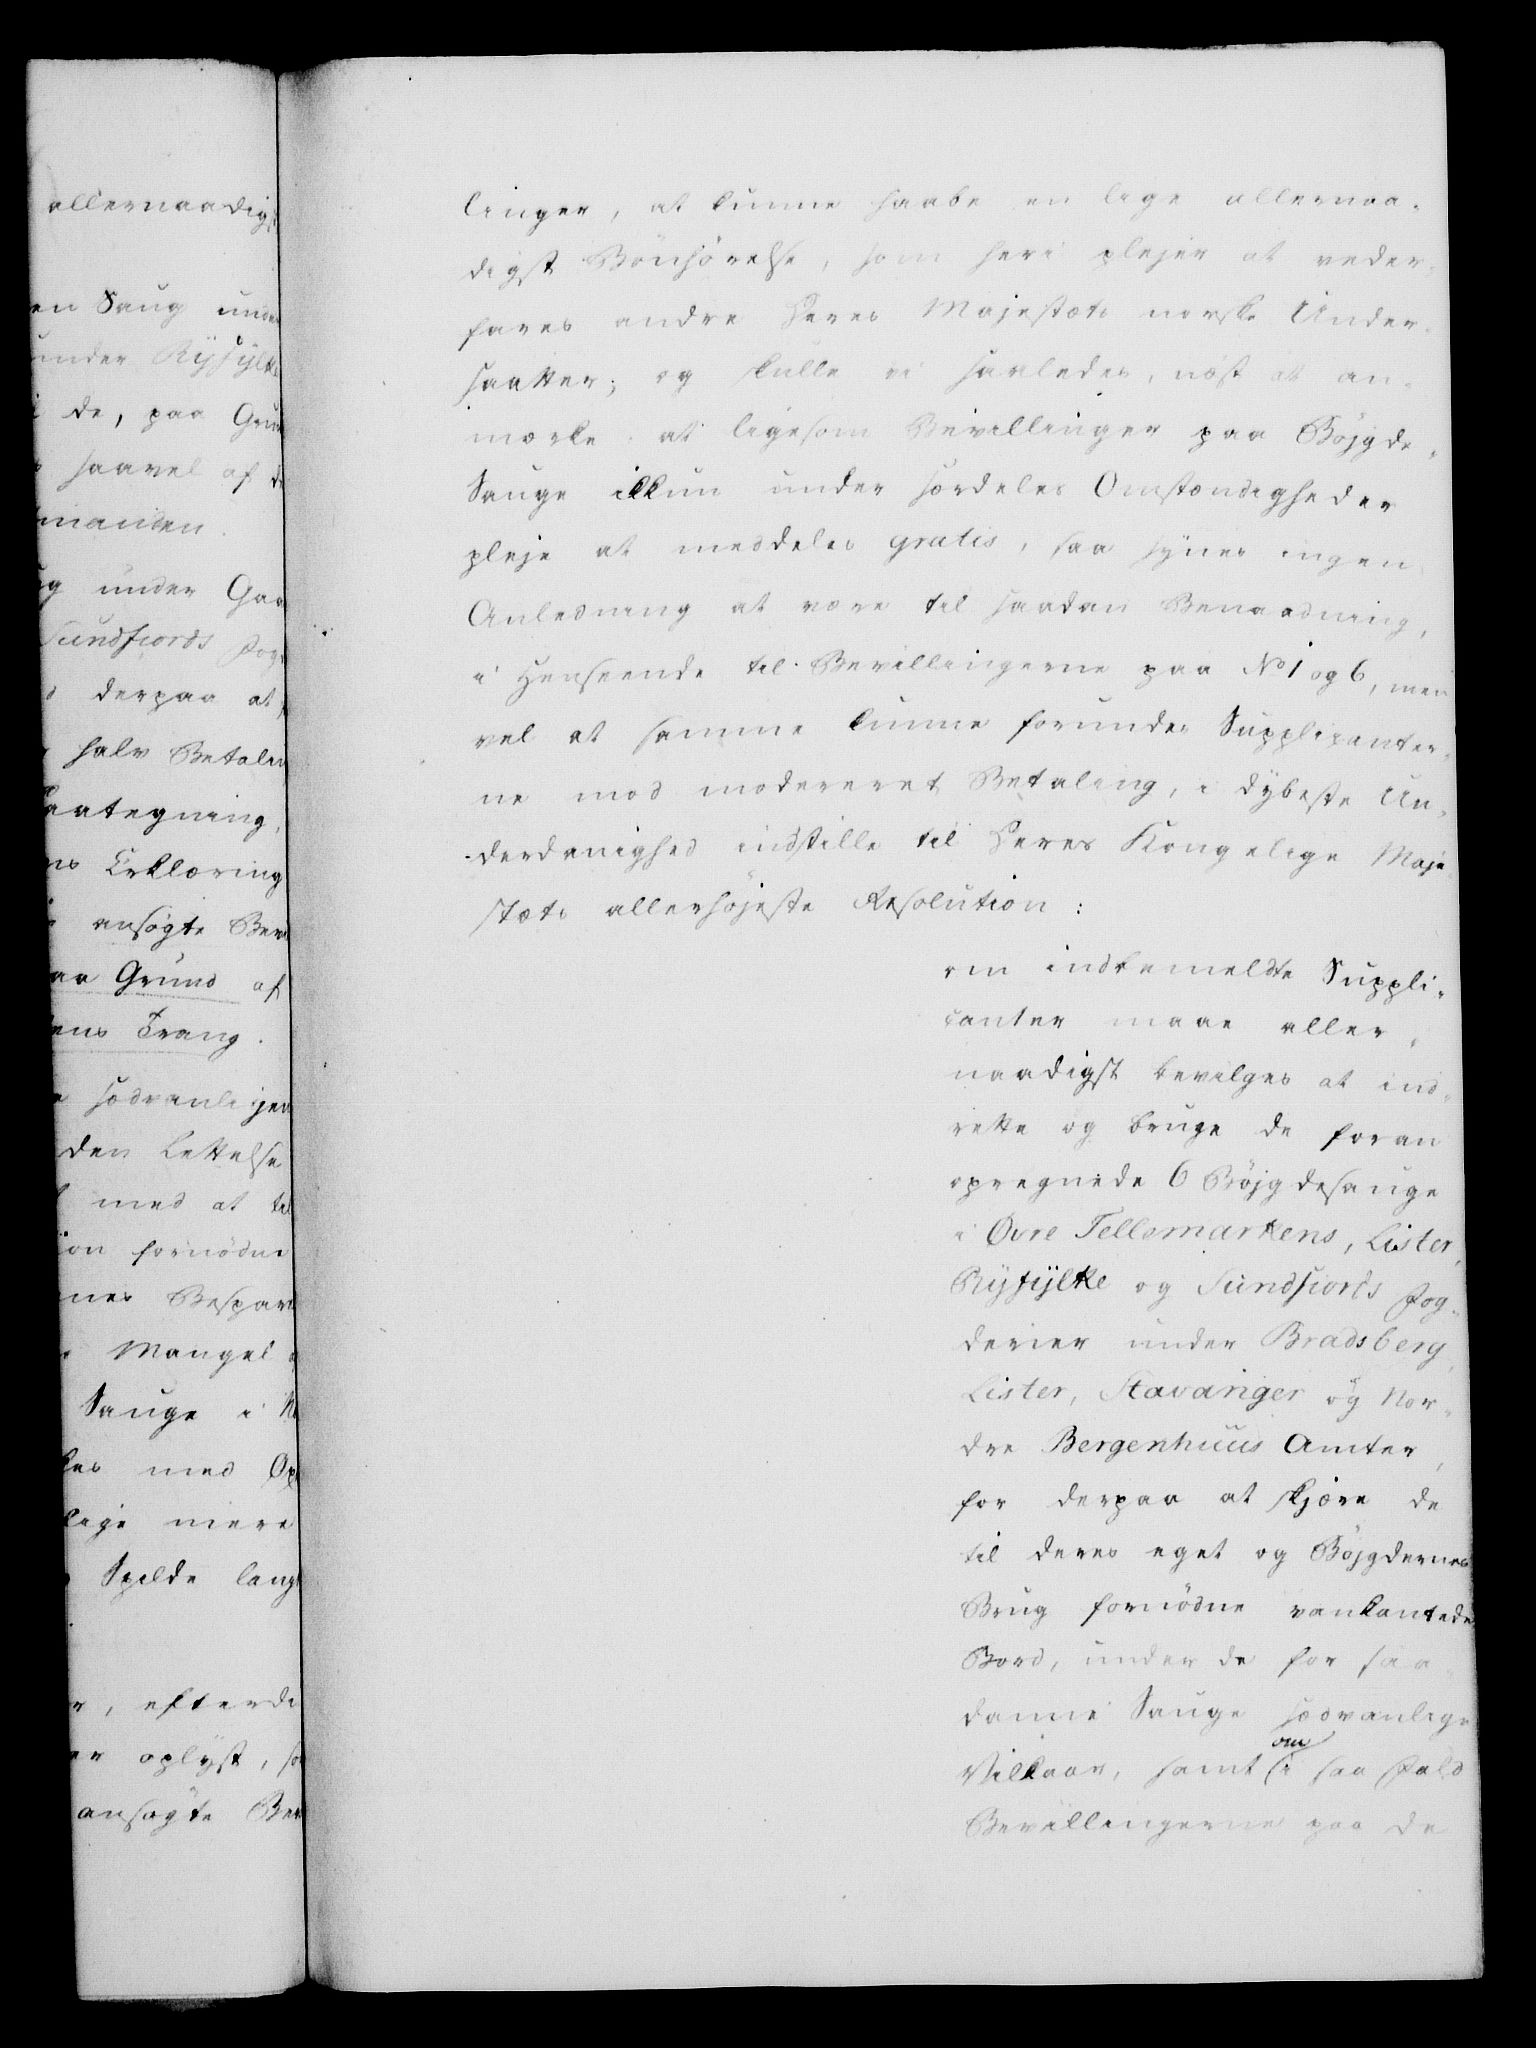 allernaadigst
en Saug under
under Ryfylke
de, paa Grund
saavel af de
manden.
under Gaa
Sundfiords Fog
derpaa at
halv Betalin
Paategning,
Erklæring
ansøgte Bevi
Grund af
Trang.
sædvanligen
den Lettelse
med at til
fornødne
Bespar
Mangel
Sauge i No
med Op
lige mere
Spilde lang
, efterdi
oplyst, so
ansøgte Bev
linger, at kunne haabe en lige allernaa-
digst Bönhörelse, som heri plejer at veder-
fares andre Deres Majestæts norske Under-
saatter; og skulle vi saaledes, næst at an-
mærke: at ligesom Bevillinger paa Böjgde-
Sauge ikkun under særdeles Omstændigheder
pleje at meddeles gratis, saa synes ingen
Anledning at være til saadan Benaadning,
i Henseende til Bevillingerne paa No 1 og 6, men
vel at samme kunne forundes Supplicanter-
ne mod modereret Betaling, i dybeste Un-
derdanighed indstille til Deres Kongelige Maje-
stæts allerhöjeste Resolution:
om indbemeldte Suppli-
canter maae aller-
naadigst bevilges at ind-
rette og bruge de foran
opregnede 6 Böjgdesauge
i Øvre Tellemarkens, Lister,
Ryfylke og Sundfiords Fog-
derier under Bradsberg,
Lister, Stavanger og Nor-
dre Bergenhuus Amter,
for derpaa at skjære de
til deres eget og Böjgdernes
Brug fornödne vankantede
Bord, under de for saa-
danne Sauge sædvanlige
om
Vilkaar, samt i saa Fald
Bevillingerne paa de